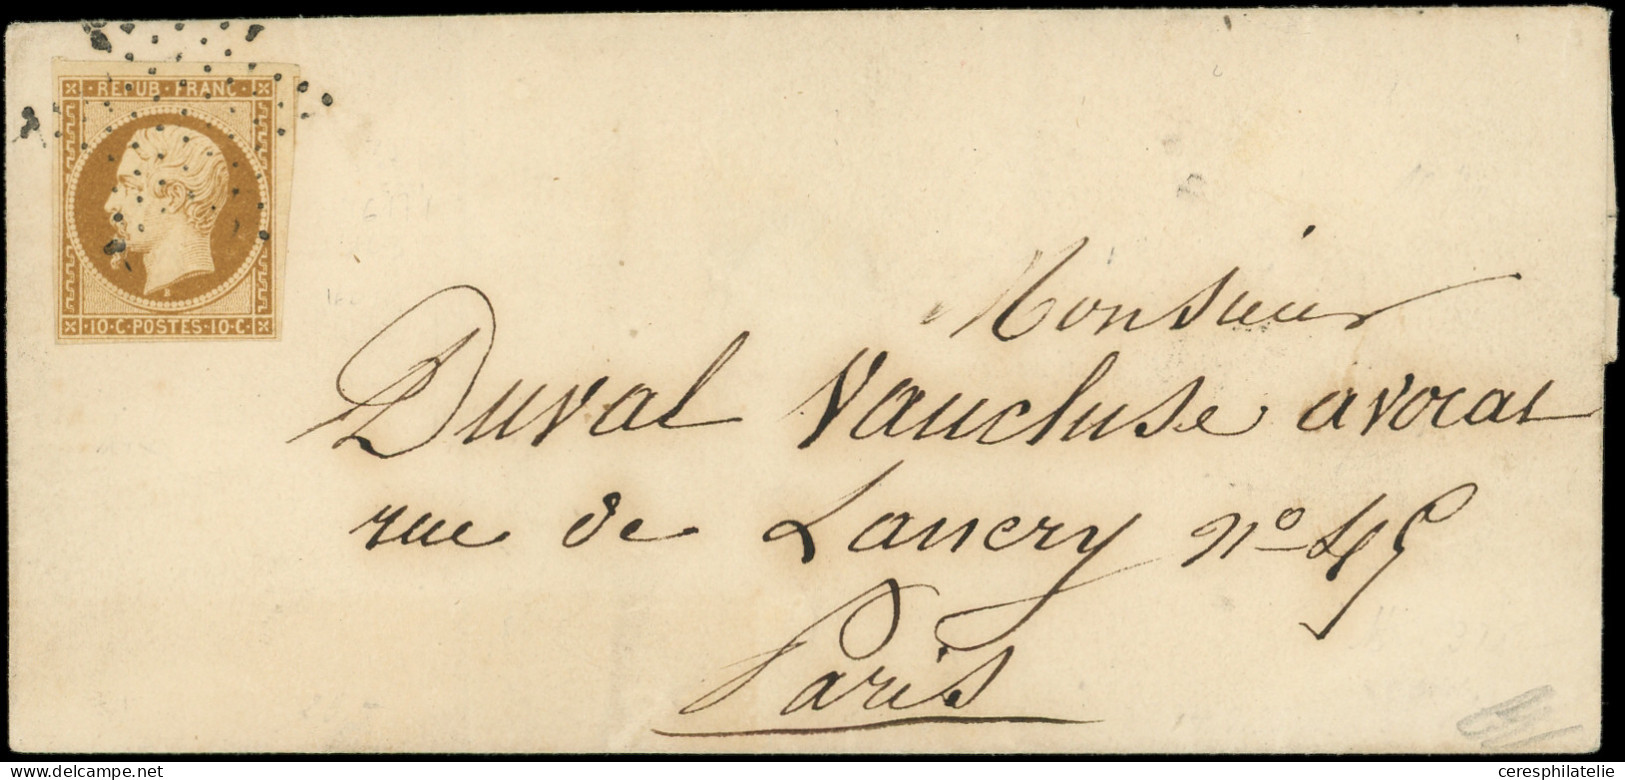 · REPUB · FRANC ·
B
· 10 · C · POSTES · 10 · C ·
Monsieur
Duval Vaucluse avocat
rue de Lancry nº 45
Paris
delcampe.net
ceresphilatelie